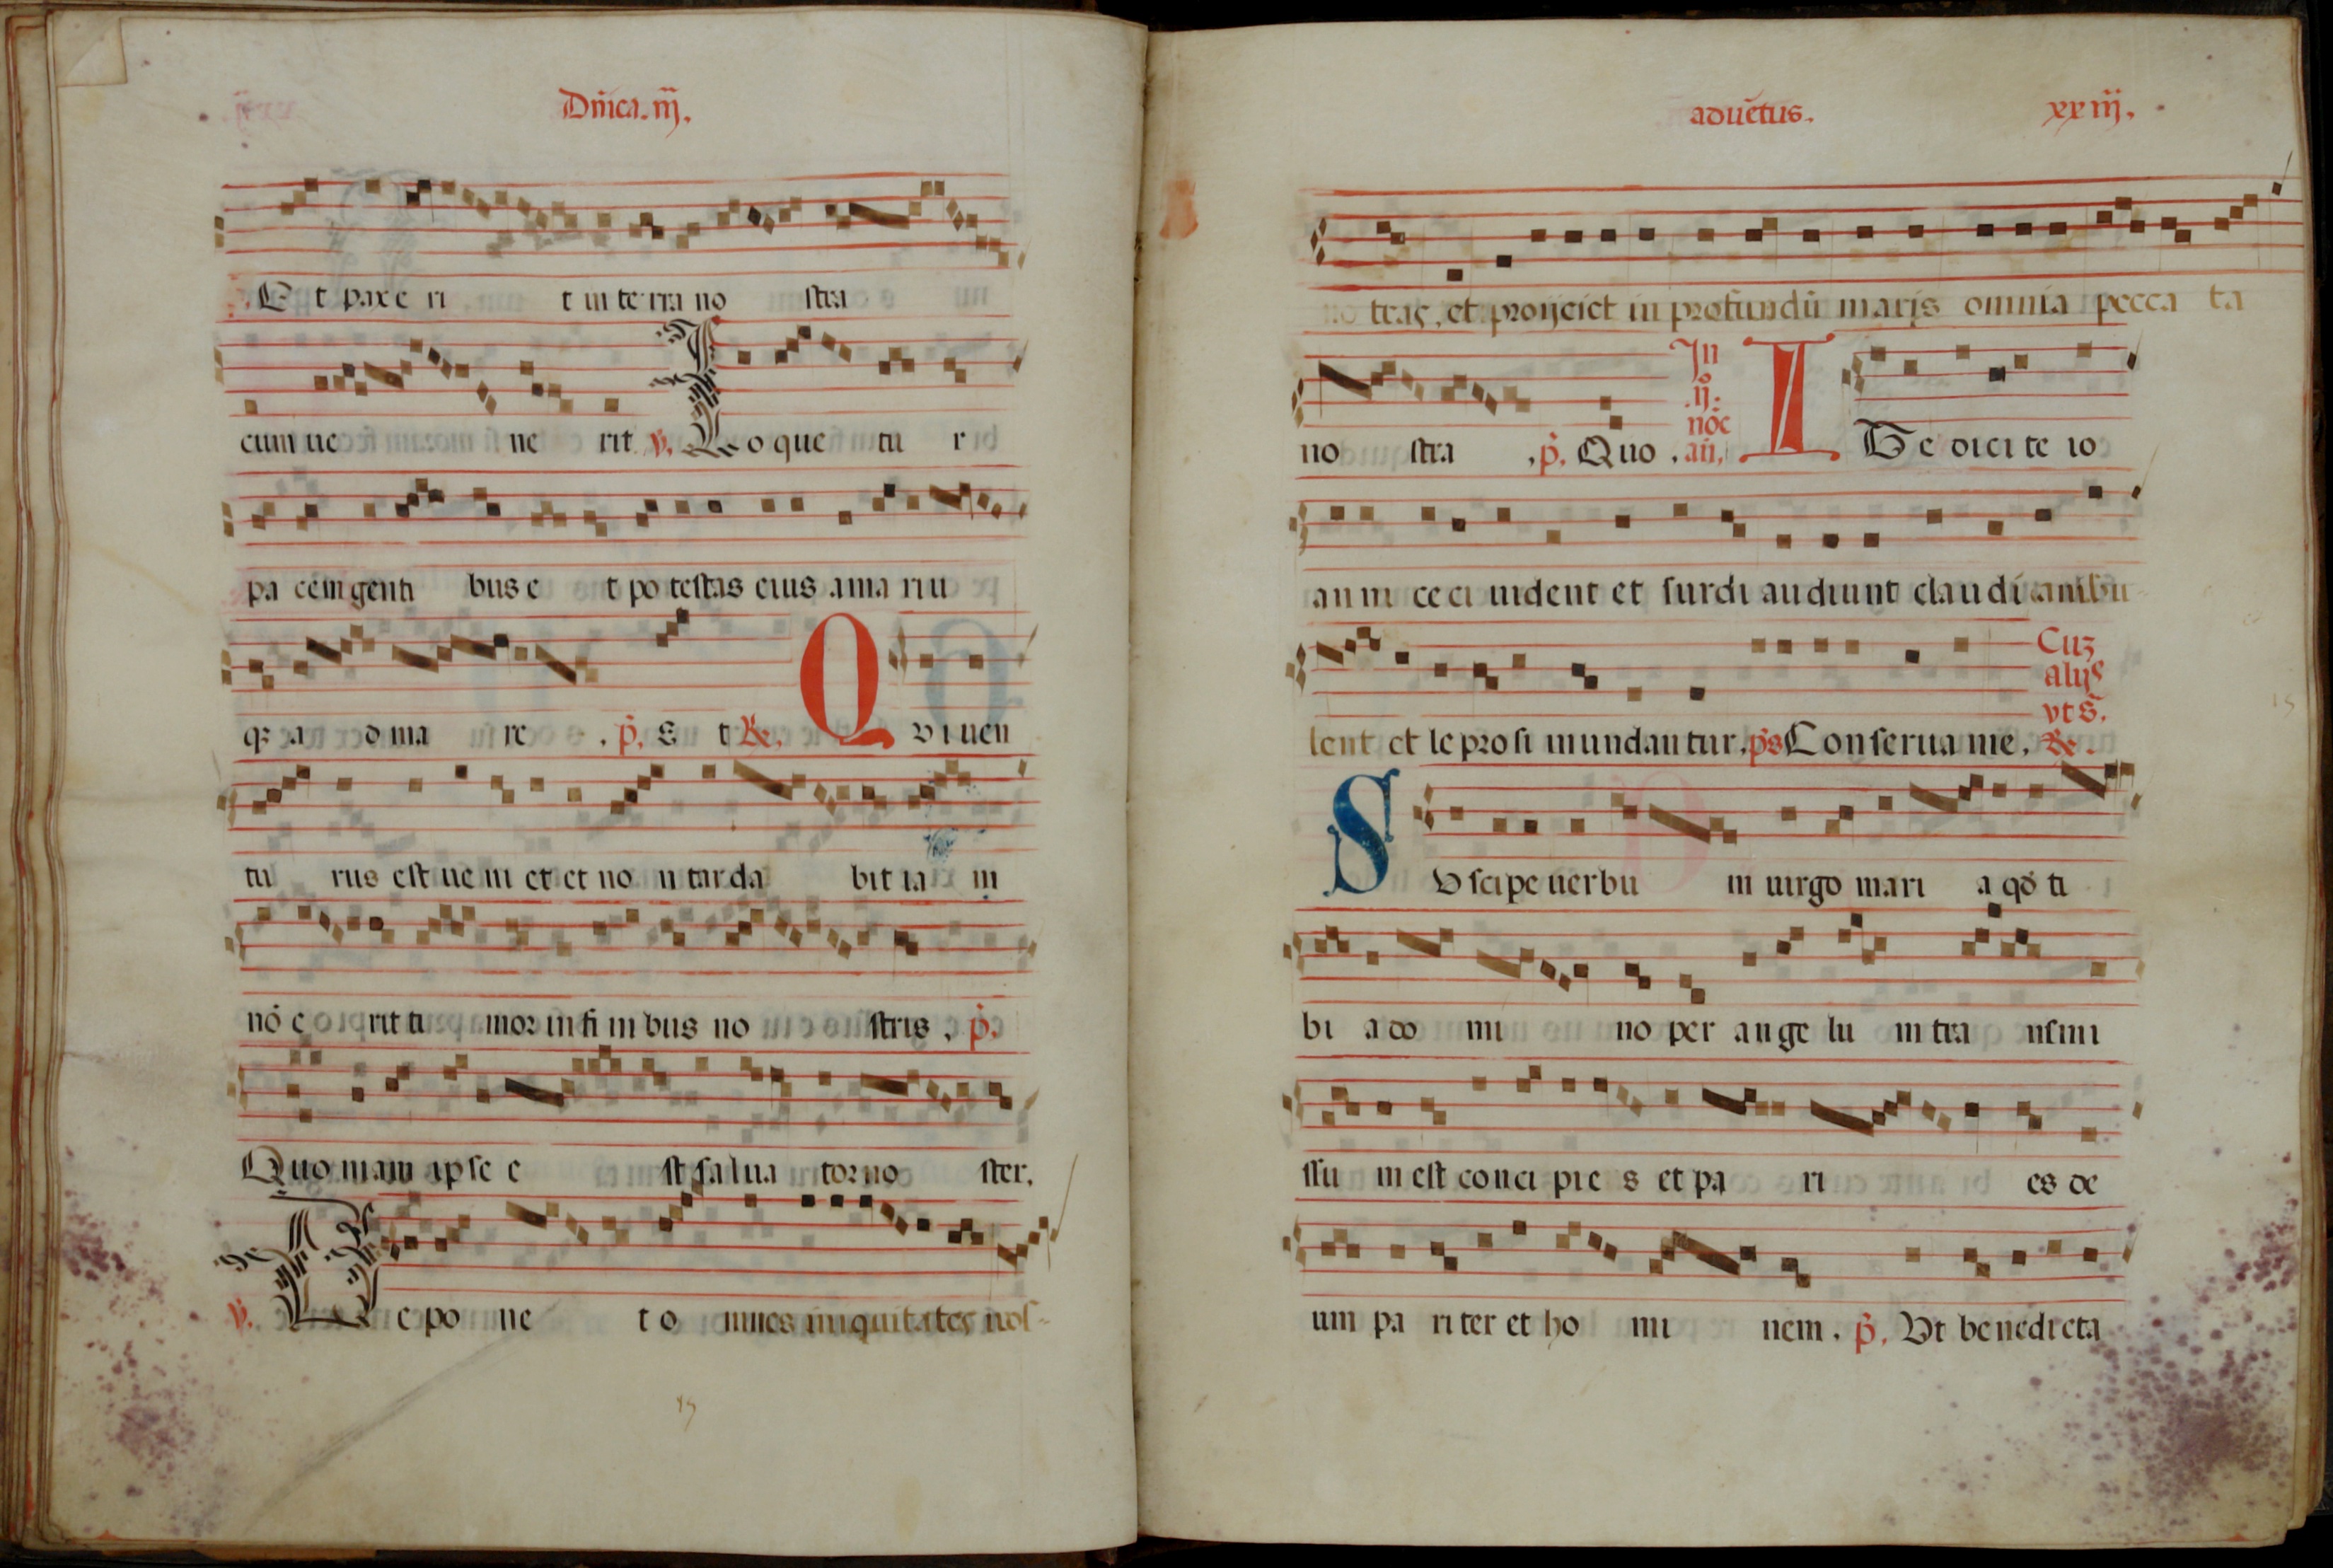 Dn̄ica. iij.
Et pax e ri t in te rra no stra
cum ue ne rit ℣. Lo que tu r
pa cem genti bus e t po testas eius a ma riu
qȝ a d ma re . p̄. E t ℟. Q vi uen
tu rus est ue ni et et no n tar da bit ia m
nō e rit ti mor in fi ni bus no stris , p̄.
Quo niam ip se e st salua tor no ster.
℣. De po ne t o mnes iniquitates nos-
aduētus. xxiij.
tras, et proijciet in profundū maris omnia pecca ta
no stra , p̄. Quo . In .ij.o noc̄ añ. I Te dici te io
an ni ce ci uident et surdi audiunt claudi ambu-
lent et le prosi mundantur. ps Conserua me, Cuȝ alijs vt s̄. ℟.
S Vscipe uerbu m uirgo mari a qd̄ ti
bi a do mi no per an ge lu m tra nsmi
ssu m est conci pie s et pa ri es de
um pa ri ter et ho mi nem . p̄. Vt benedicta